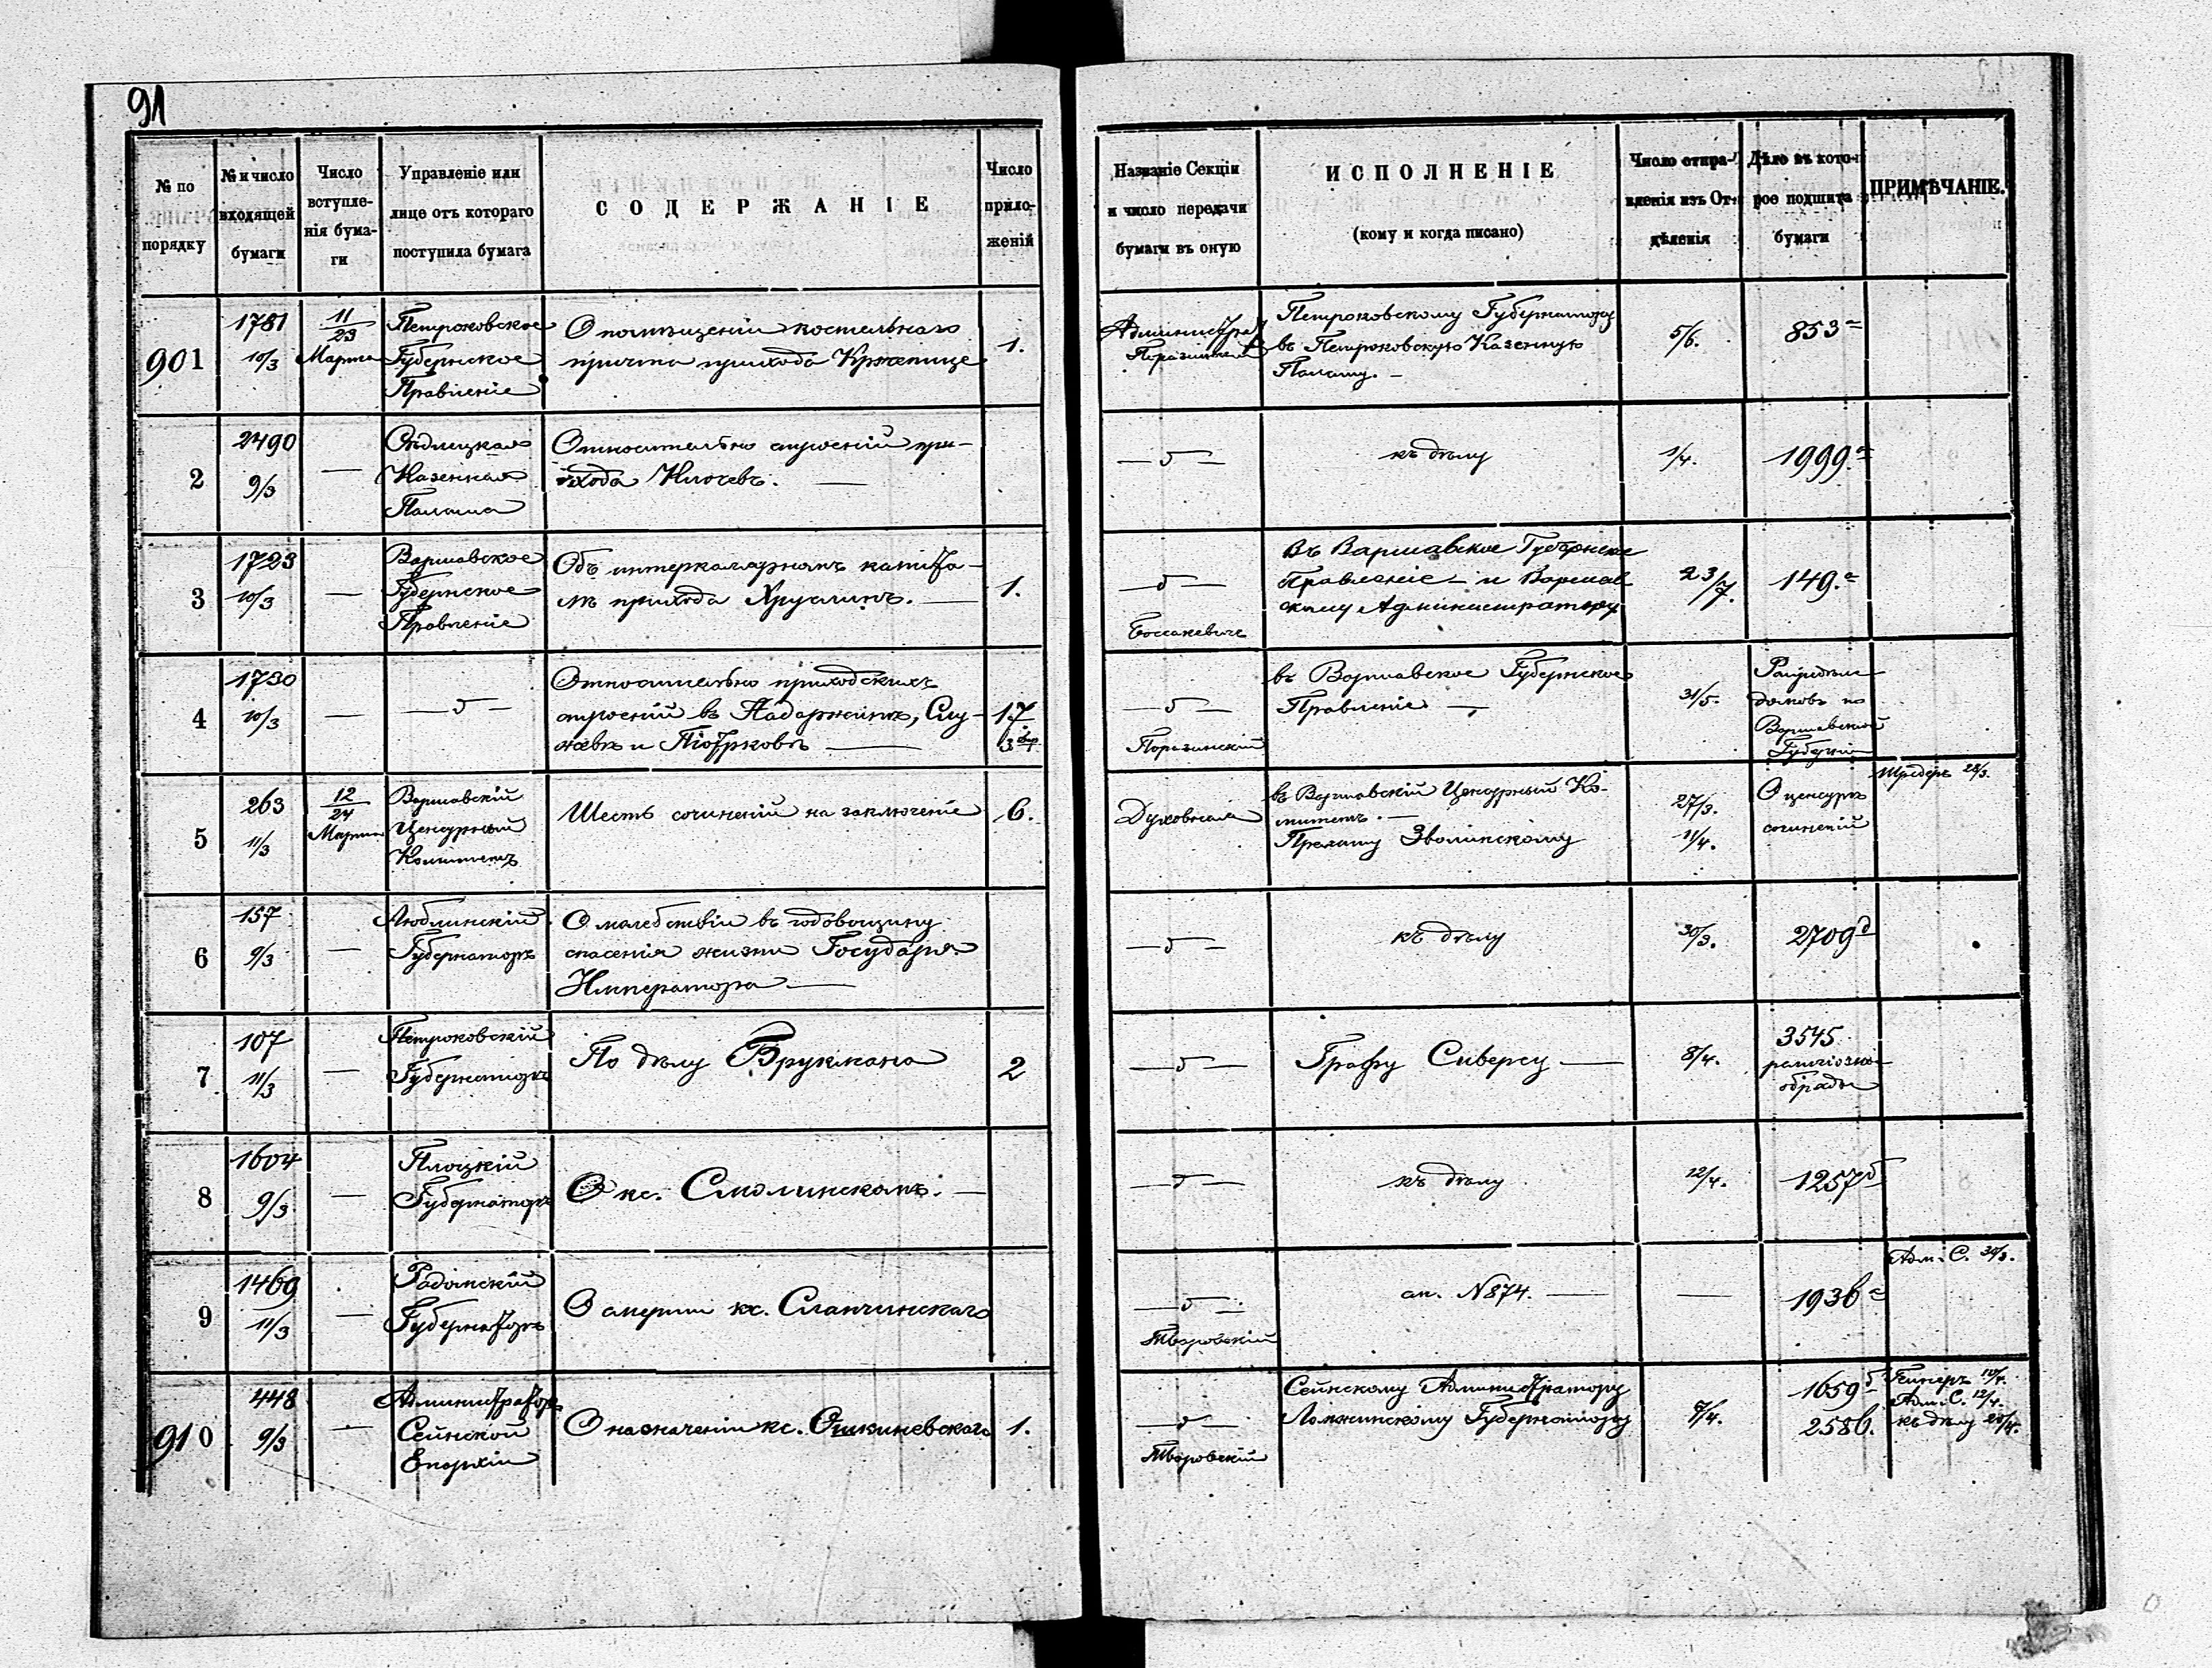 91
№ по порядку
№ и число входящей бумаги
Число вступле-нія бума-ги
Управленіе или лице отъ котораго поступила бумага
СОДЕРЖАНІЕ
Число прило-женій
Названіе Секціи и число передачи бумаги въ оную
ИСПОЛНЕНІЕ
(кому и когда писано)
Число отпра-вленія изъ От-дѣленія
Дѣло въ кото-рое подшита бумаги
ПРИМѢЧАНІЕ.
901
1781
10/3
11/23 Марта
Петроковское
Губернское
Правленіе
О помѣщеніи костельнаго
причта прихода Кржепице
1.
Петроковскому Губернатору
въ Петроковскую Казенную
Палату. —
5/6.
853 а
2
2490
9/3
—
Сѣдлецкая
Казенная
Палата
Относительно строеній при-
хода Клочевъ. —
— " —
къ дѣлу
1/4.
1999. а
3
1723
10/3
—
Варшавское
Губернское
Правленіе
Объ интеркалярномъ капита-
лѣ прихода Хруслинъ. —
1.
— " —
Въ Варшавское Губернское
Правленіе — и Варшав
скому Администратору
23/7.
149. а
4
1730
10/3
—
— " —
Относительно приходскихъ
строеній въ Надаржинѣ, Слу-
жевѣ и Піотрковѣ —
17
— " —
въ Варшавское Губернское
Правленіе —
31/5.
домовъ по
Варшавской
Губерніи
5
263
11/3
12/24 Марта
Варшавскій
Цензурный
Комитетъ
Шесть сочиненій на заключеніе
6.
Духовная
въ Варшавскій Цензурный Ко-
митетъ. —
Прелату Зволинскому
27/3.
11/4.
О цензурѣ
сочиненій
6
157
9/3
—
Люблинскій
Губернаторъ
О молебствіи въ годовщину
спасенія жизни Государя
Императора —
— " —
къ дѣлу
30/3.
2709 д
7
107
11/3
—
Петроковскій
Губернаторъ
По дѣлу Брукмана
2
— " —
Графу Сиверсу —
8/4.
3545
обряды
8
1604
9/3
—
Плоцкій
Губернаторъ
О кс. Смолинскомъ. —
— " —
къ дѣлу
12/4.
1257 б
9
1469
11/3
—
Радомскій
Губернаторъ
О смерти кс. Слапчинскаго
— " —
сп. N 874. —
—
1936 а
Адм. С. 30/3.
910
448
9/3
—
Администраторъ
Сейнской
Епархіи
О назначеніи кс. Ошкиневскаго
1.
— " —
Сейнскому Администратору
Ломжинскому Губернатору
7/4.
1659 б
258б.
Адм. С. 12/4.
къ дѣлу 20/4.